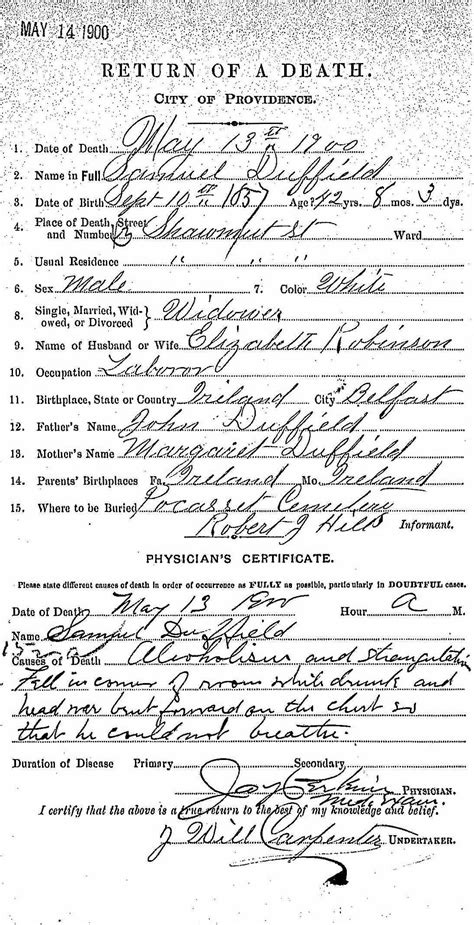 MAY 14 1900
RETURN OF A DEATH.
CITY OF PROVIDENCE.
1. Date of Death May 13th 1900
2. Name in Full Samuel Duffield
3. Date of Birth Sept 10th 1857 Age? 42 yrs. 8 mos. 3 dys.
4. Place of Death, Street and Number Shawmut St Ward
5. Usual Residence " " " "
6. Sex Male 7. Color White
8. Single, Married, Widowed, or Divorced } Widower
9. Name of Husband or Wife Elizabeth Robinson
10. Occupation Laboror
11. Birthplace, State or Country Ireland City Belfast
12. Father's Name John Duffield
13. Mother's Name Margaret Duffield
14. Parents' Birthplaces Fa. Ireland Mo. Ireland
15. Where to be Buried Pocasset Cemetery
Robert J Hills Informant.
PHYSICIAN'S CERTIFICATE.
Please state different causes of death in order of occurrence as FULLY as possible, particularly in DOUBTFUL cases.
Date of Death May 13 1900 Hour A M.
Name Samuel Duffield
Causes of Death Alcoholism and strangulation
Fell in corner of room while drunk and
head was bent forward on the chest so
that he could not breathe.
Duration of Disease Primary Secondary
Jay Perkins PHYSICIAN.
Med. Exam.
I certify that the above is a true return to the best of my knowledge and belief.
J Will Carpenter UNDERTAKER.